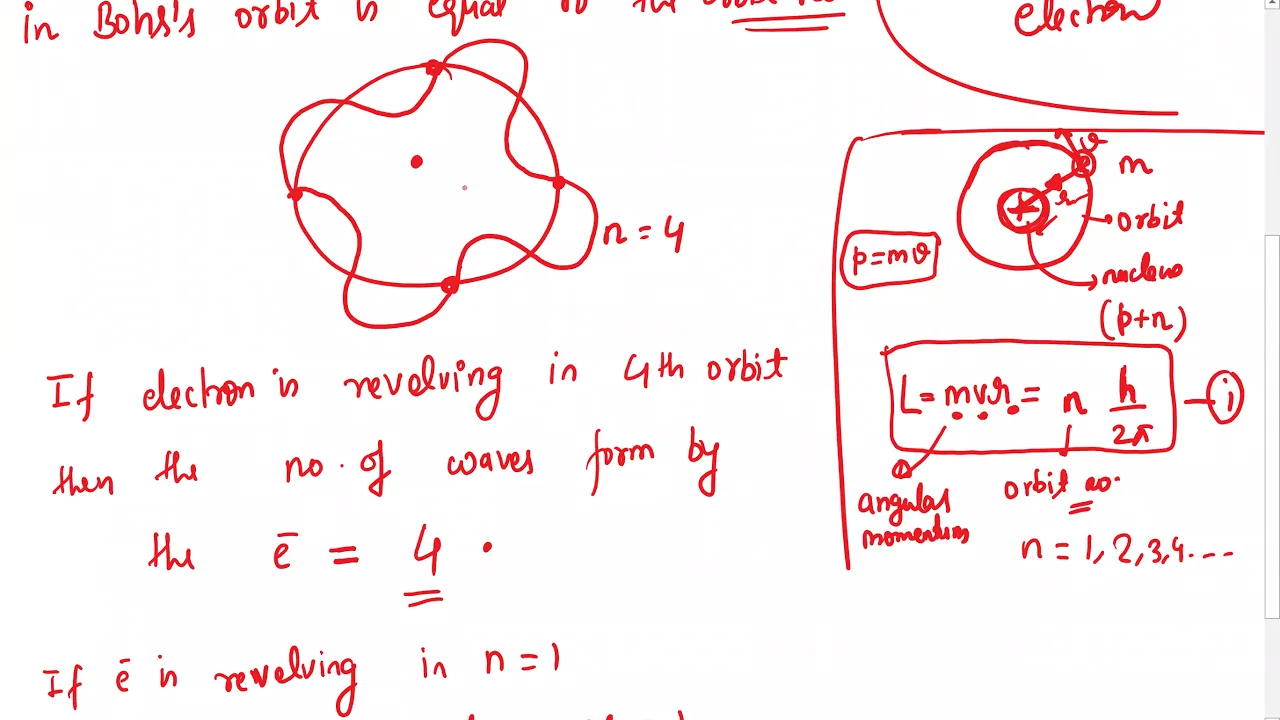 in Bohr's orbit is equal to the orbit no.
electron
n = 4
v
m
r
orbit
p = mv
nucleus
(p+n)
If electron is revolving in 4th orbit
then the no. of waves form by
the ē = 4
L = mvr = n h/2π — i
angular momentum
orbit no.
n = 1, 2, 3, 4....
If ē is revolving in n = 1